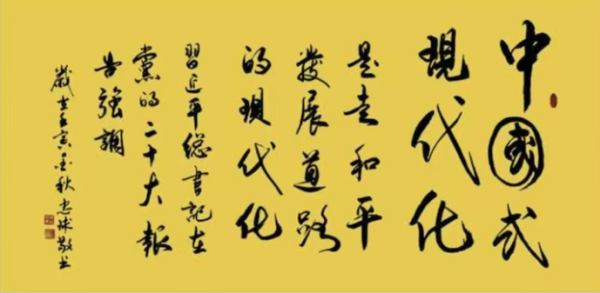 中國式
現代化
是走和平
發展道路
的現代化
習近平總書記在
黨的二十大報
告強調
歲在壬寅金秋忠球敬書